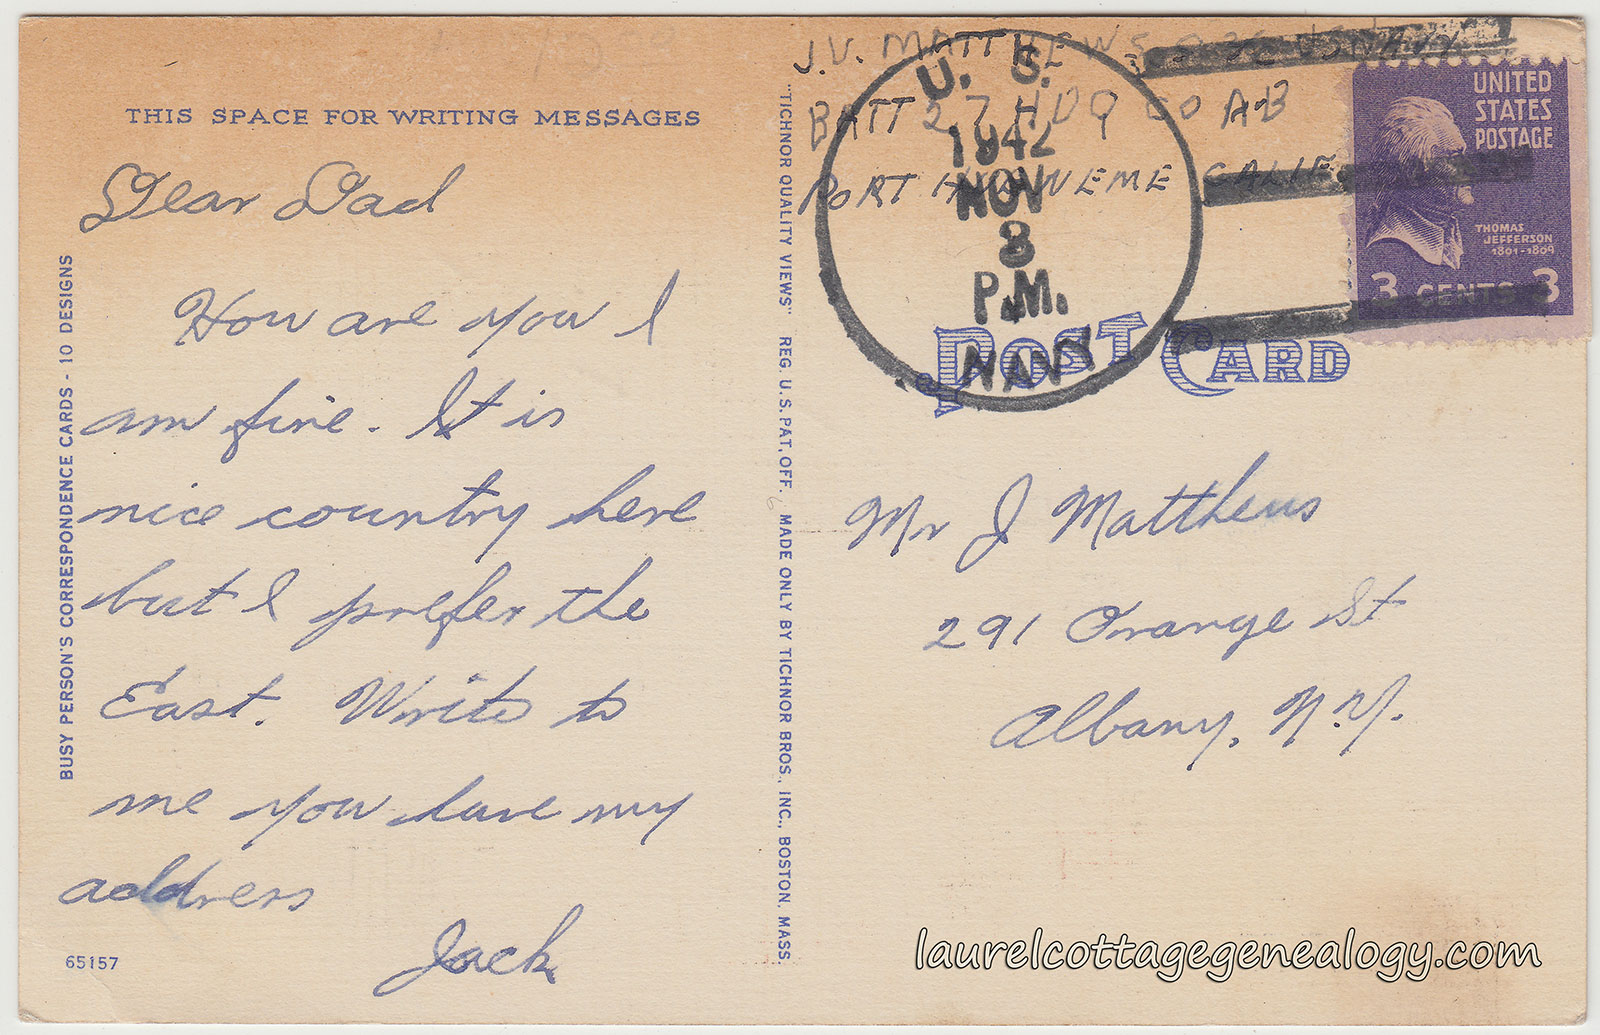 THIS SPACE FOR WRITING MESSAGES
Dear Dad
How are you I
am fine. It is
nice country here
but I prefer the
East. Write to
me you have my
address
Jack
65157
BUSY PERSON'S CORRESPONDENCE CARDS - 10 DESIGNS
"TICHNOR QUALITY VIEWS" REG. U.S. PAT. OFF. MADE ONLY BY TICHNOR BROS., INC., BOSTON, MASS.
J.V. MATTHEWS US NAVY
BATT 27 HDQ CO
PORT HUENEME CALIF
U. S.
1942
NOV
8
P.M.
NAVY
UNITED
STATES
POSTAGE
THOMAS
JEFFERSON
1801-1809
3 CENTS 3
POST CARD
Mr J Matthews
291 Orange St
Albany, N.Y.
laurelcottagegenealogy.com